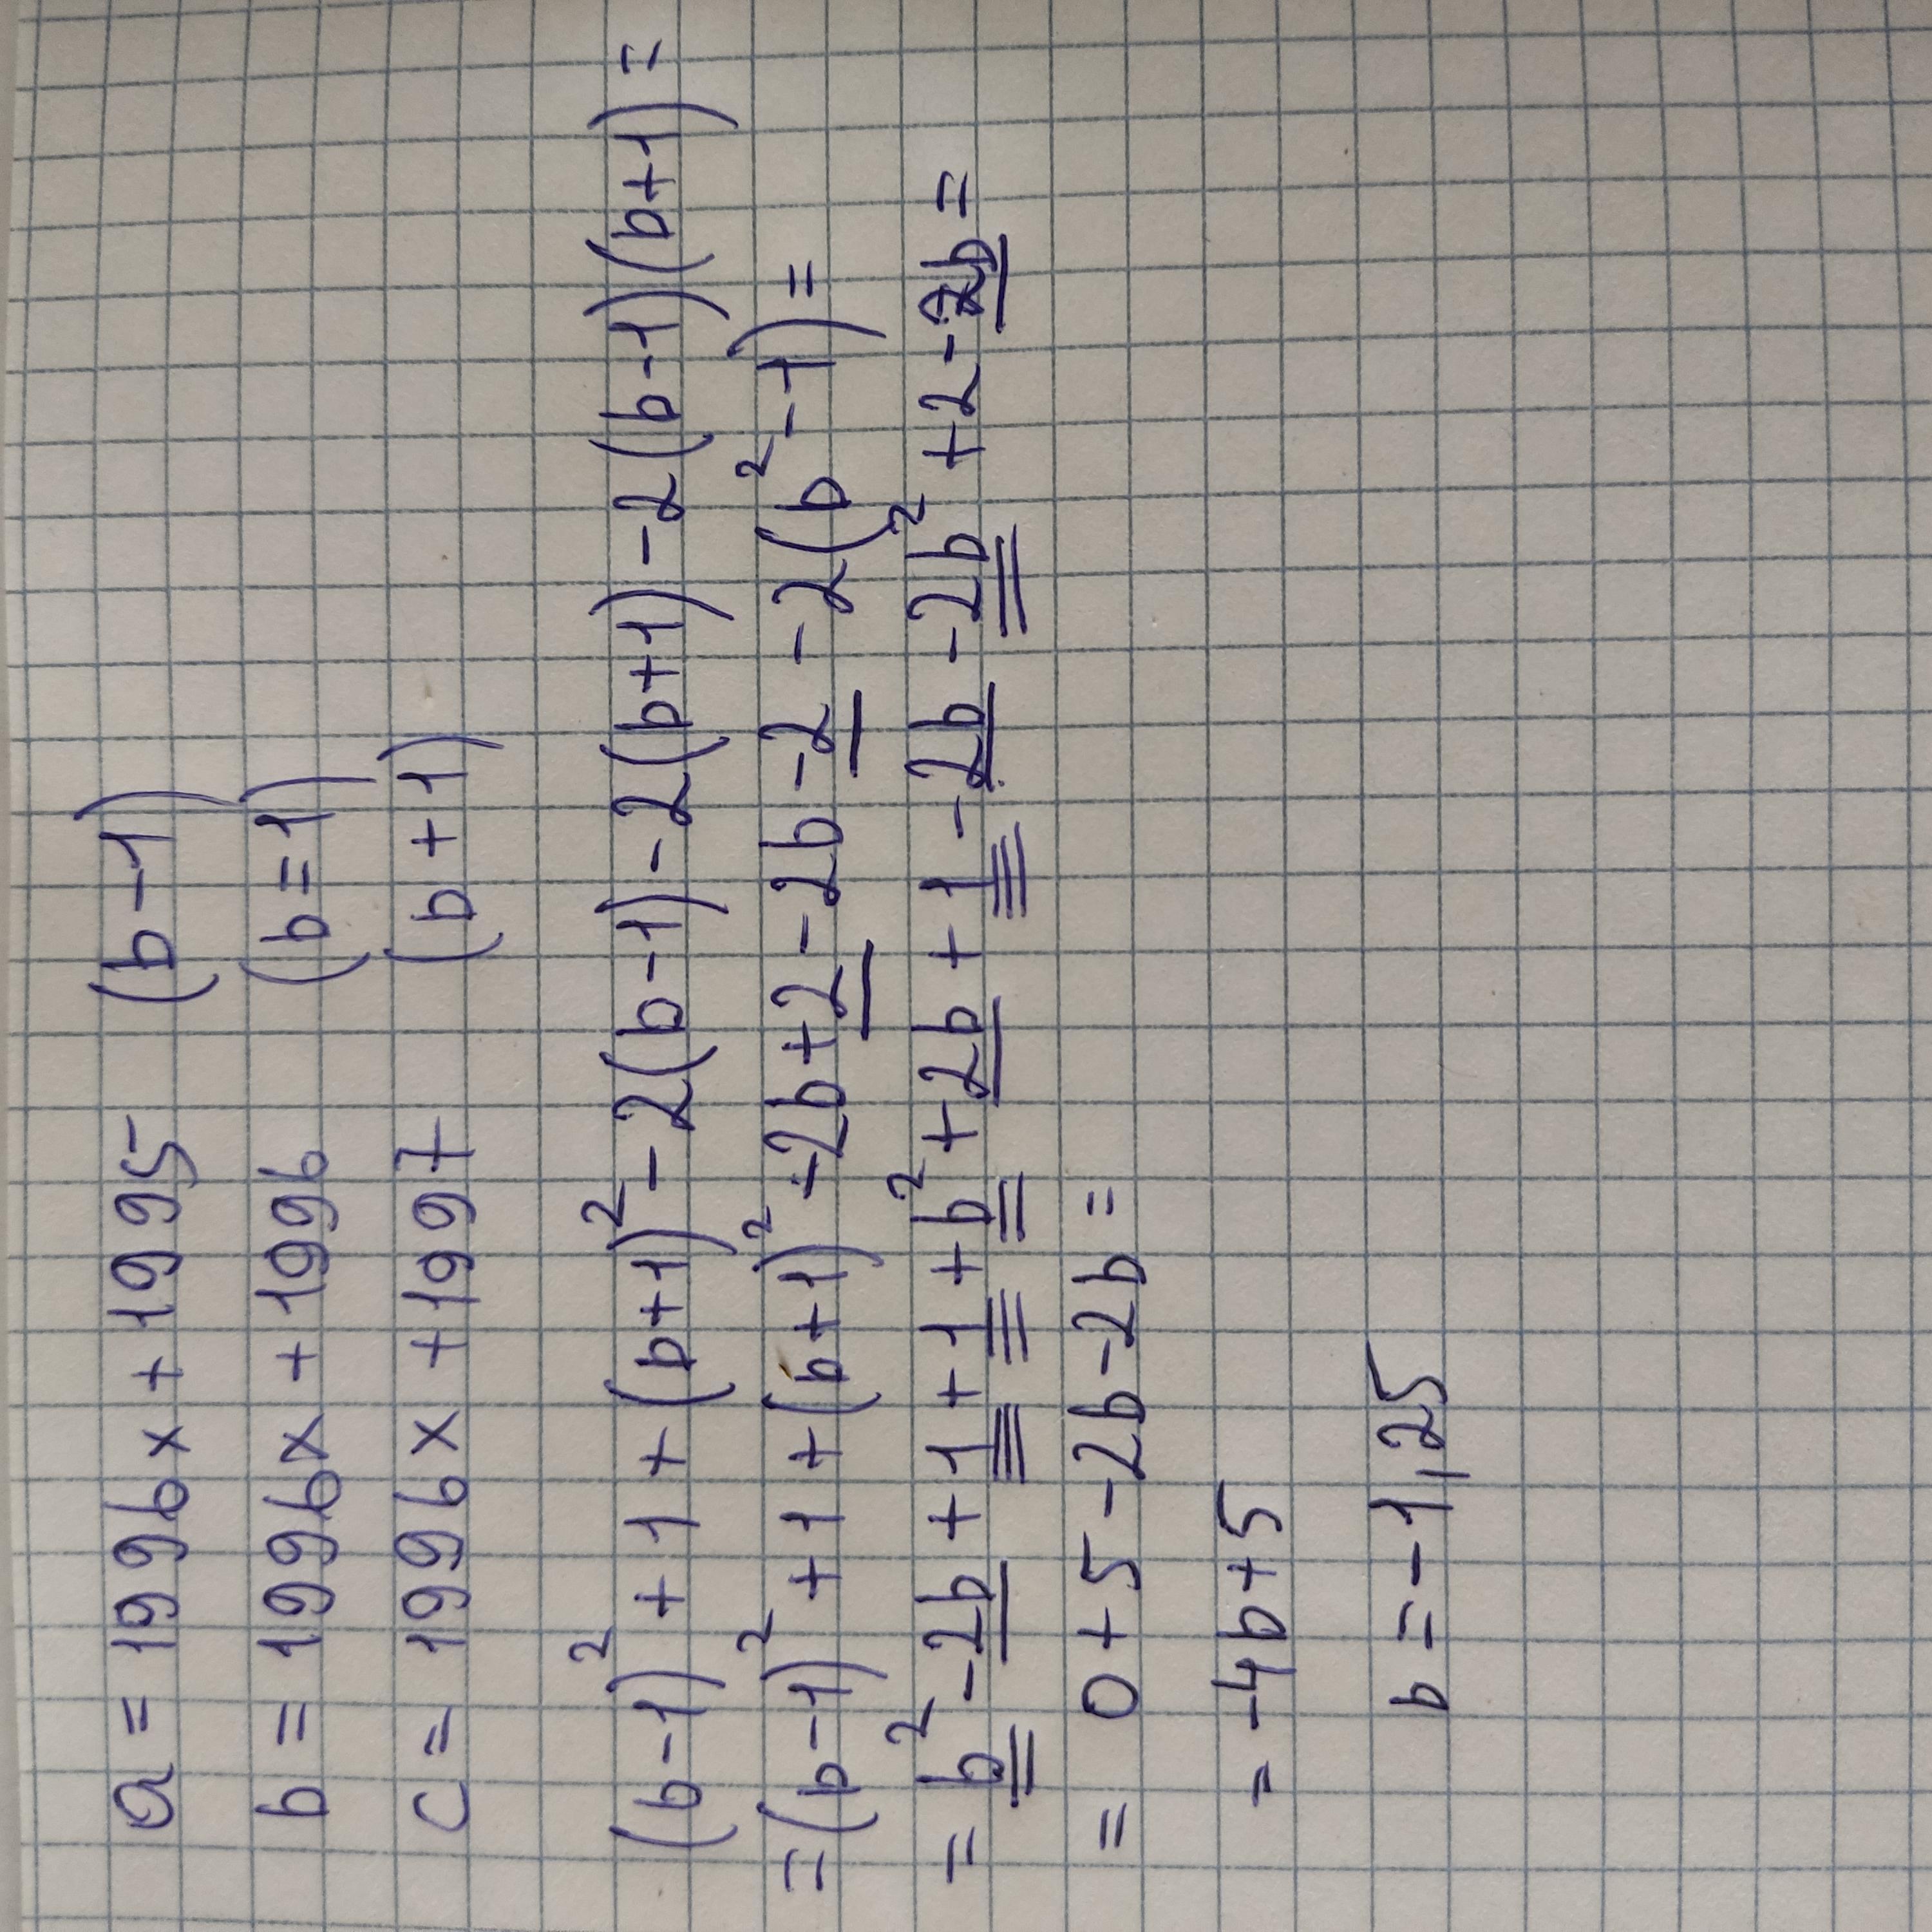 a = 1996x + 1995 (b-1)
b = 1996x + 1996 (b=1)
c = 1996x + 1997 (b+1)
(b-1)² + 1 + (b+1)² - 2(b-1) - 2(b+1) - 2(b-1)(b+1) =
= (b-1)² + 1 + (b+1)² - 2b + 2 - 2b - 2 - 2(b² - 1) =
= b² - 2b + 1 + 1 + b² + 2b + 1 - 2b - 2b² + 2 - 2b =
= 0 + 5 - 2b - 2b =
= -4b + 5
b = -1,25